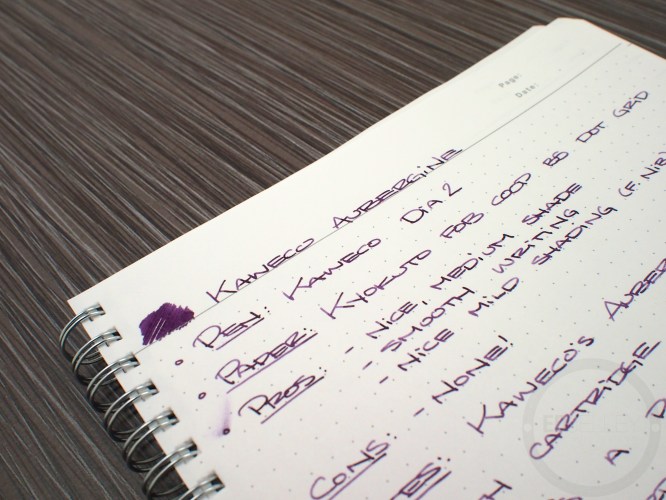 Page:
Date:
KAWECO AUBERGINE
• PEN: KAWECO DIA 2
• PAPER: KYOKUTO FOB COOP B5 DOT GRID
• PROS: - NICE, MEDIUM SHADE
- SMOOTH WRITING
- NICE MILD SHADING (F. NIB)
CONS: - NONE!
KAWECO'S
CARTRIDGE
A